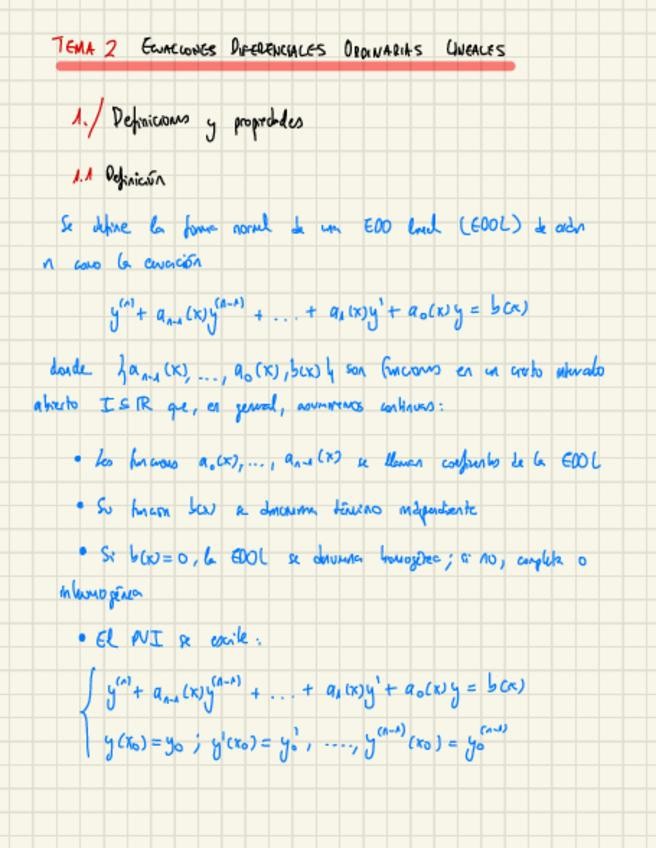 TEMA 2 ECUACIONES DIFERENCIALES ORDINARIAS LINEALES
1./ Definiciones y propiedades
1.1 Definición
Se define la forma normal de una EDO lineal (EDOL) de orden
n como la ecuación
y⁽ⁿ⁾ + aₙ₋₁(x)y⁽ⁿ⁻¹⁾ + ... + a₁(x)y' + a₀(x)y = b(x)
donde {aₙ₋₁(x), ..., a₀(x), b(x)} son funciones en un cierto intervalo
abierto I ⊆ ℝ que, en general, asumiremos continuas:
• Las funciones a₀(x), ..., aₙ₋₁(x) se llaman coeficientes de la EDOL
• Su función b(x) se denomina término independiente
• Si b(x)=0, la EDOL se denomina homogénea; si no, completa o
inhomogénea
• El PVI se escribe:
{ y⁽ⁿ⁾ + aₙ₋₁(x)y⁽ⁿ⁻¹⁾ + ... + a₁(x)y' + a₀(x)y = b(x)
y(x₀) = y₀ ; y'(x₀) = y₀', ...., y⁽ⁿ⁻¹⁾(x₀) = y₀⁽ⁿ⁻¹⁾